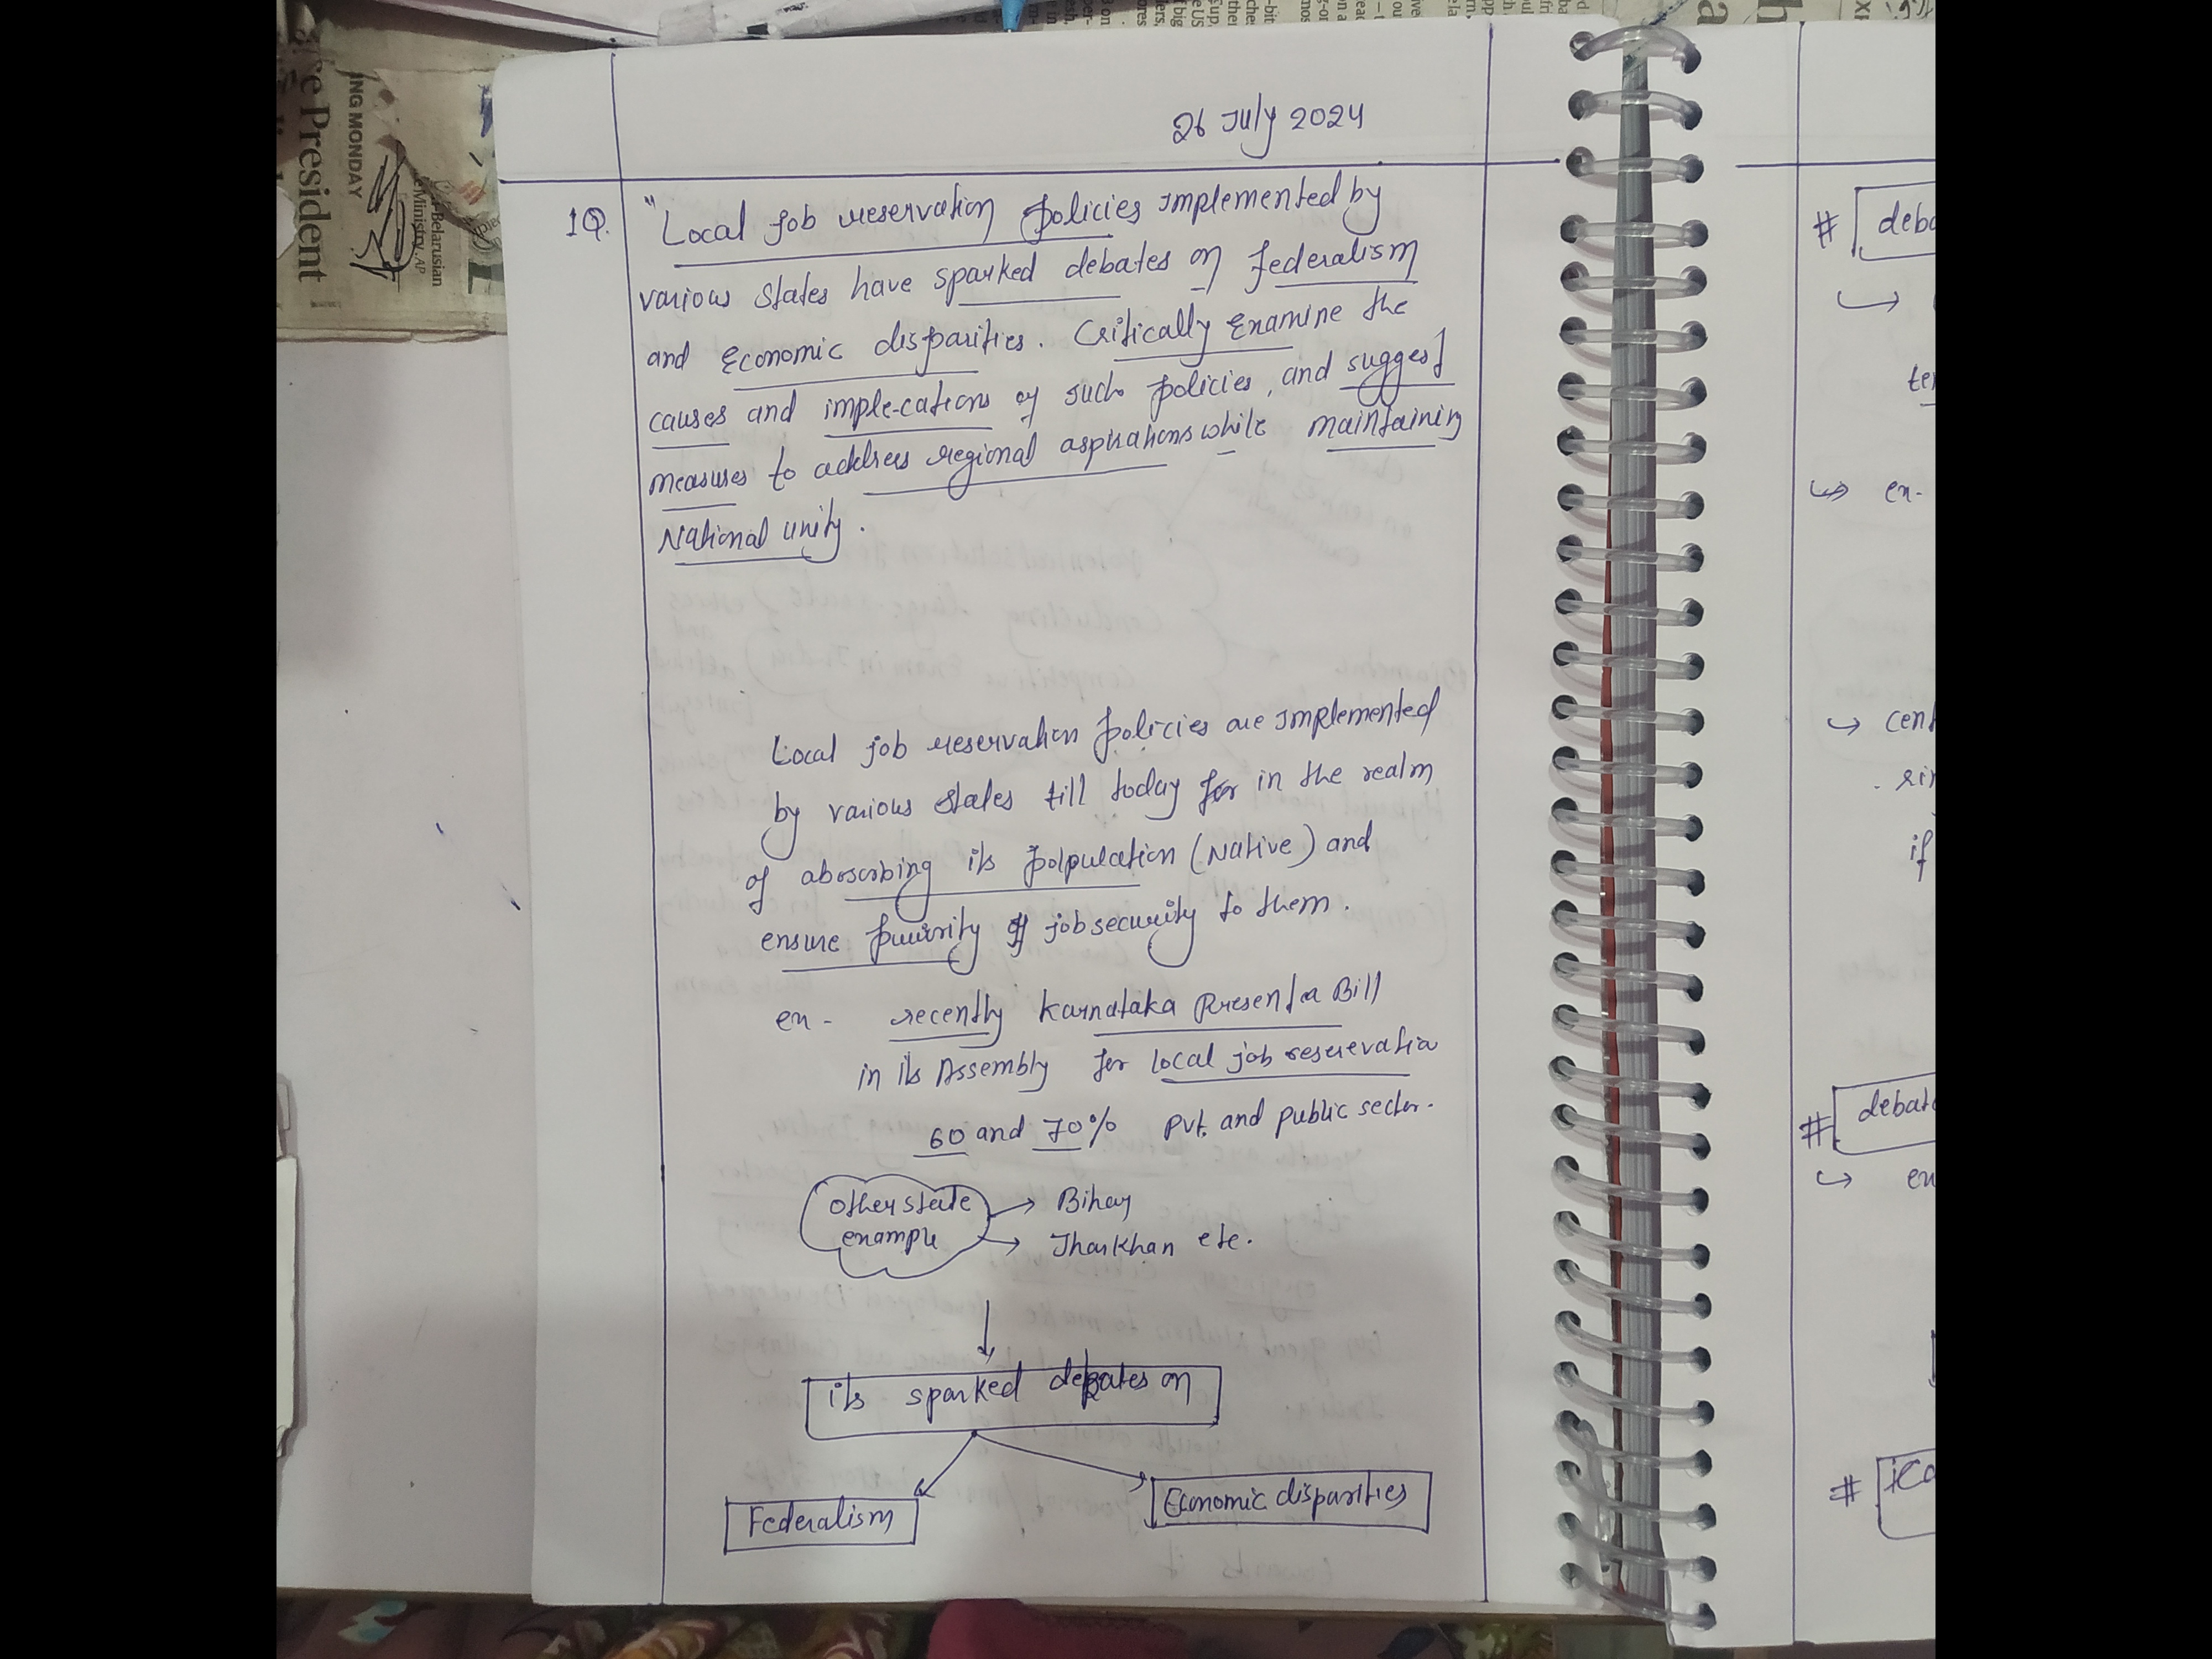 ce President
ING MONDAY
Belarusian
Ministry, AP
26 July 2024
1Q. "Local job reservation policies implemented by
various states have sparked debates on federalism
and economic disparities. Critically Examine the
causes and imple-cations of such policies, and suggest
measures to address regional aspirations while maintaining
National unity.
Local job reservation policies are implemented
by various states till today for in the realm
of aboscrbing its polpulation (Native) and
ensure puriority of job security to them.
en - recently Karnataka Present a Bill
in its Assembly for local job reserevatio
60 and 70% Pvt. and public sector.
Other state
example
→ Bihar
→ Jharkhan etc.
its sparked debates on
Federalism
Economic disparities
# deba
ter
↳ en-
↳ cent
if
# debat
↳ en
#